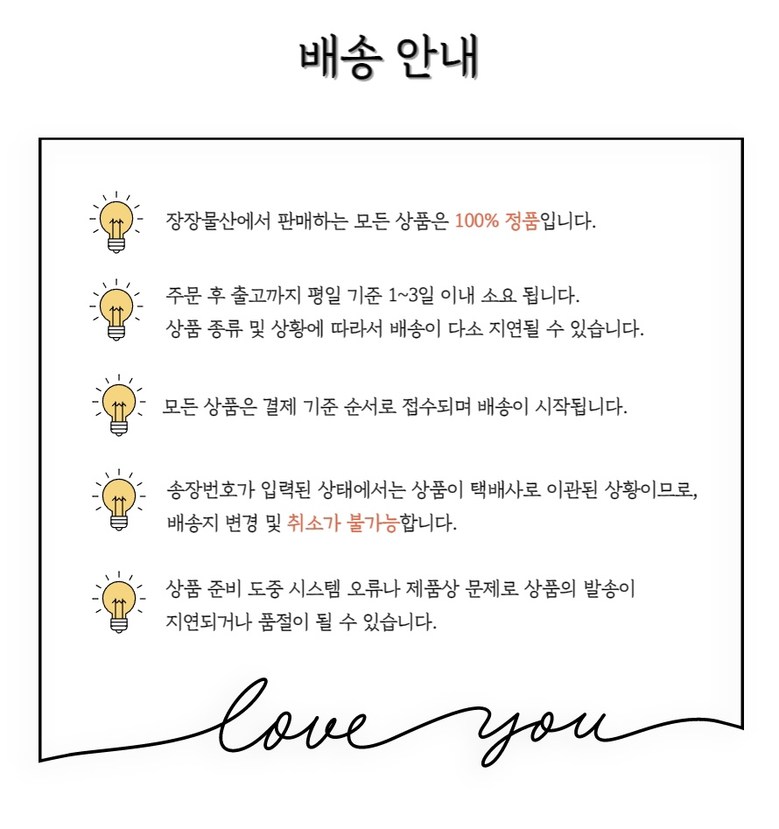 배송 안내
장장물산에서 판매하는 모든 상품은 100% 정품입니다.
주문 후 출고까지 평일 기준 1~3일 이내 소요 됩니다.
상품 종류 및 상황에 따라서 배송이 다소 지연될 수 있습니다.
모든 상품은 결제 기준 순서로 접수되며 배송이 시작됩니다.
송장번호가 입력된 상태에서는 상품이 택배사로 이관된 상황이므로,
배송지 변경 및 취소가 불가능합니다.
상품 준비 도중 시스템 오류나 제품상 문제로 상품의 발송이
지연되거나 품절이 될 수 있습니다.
love you